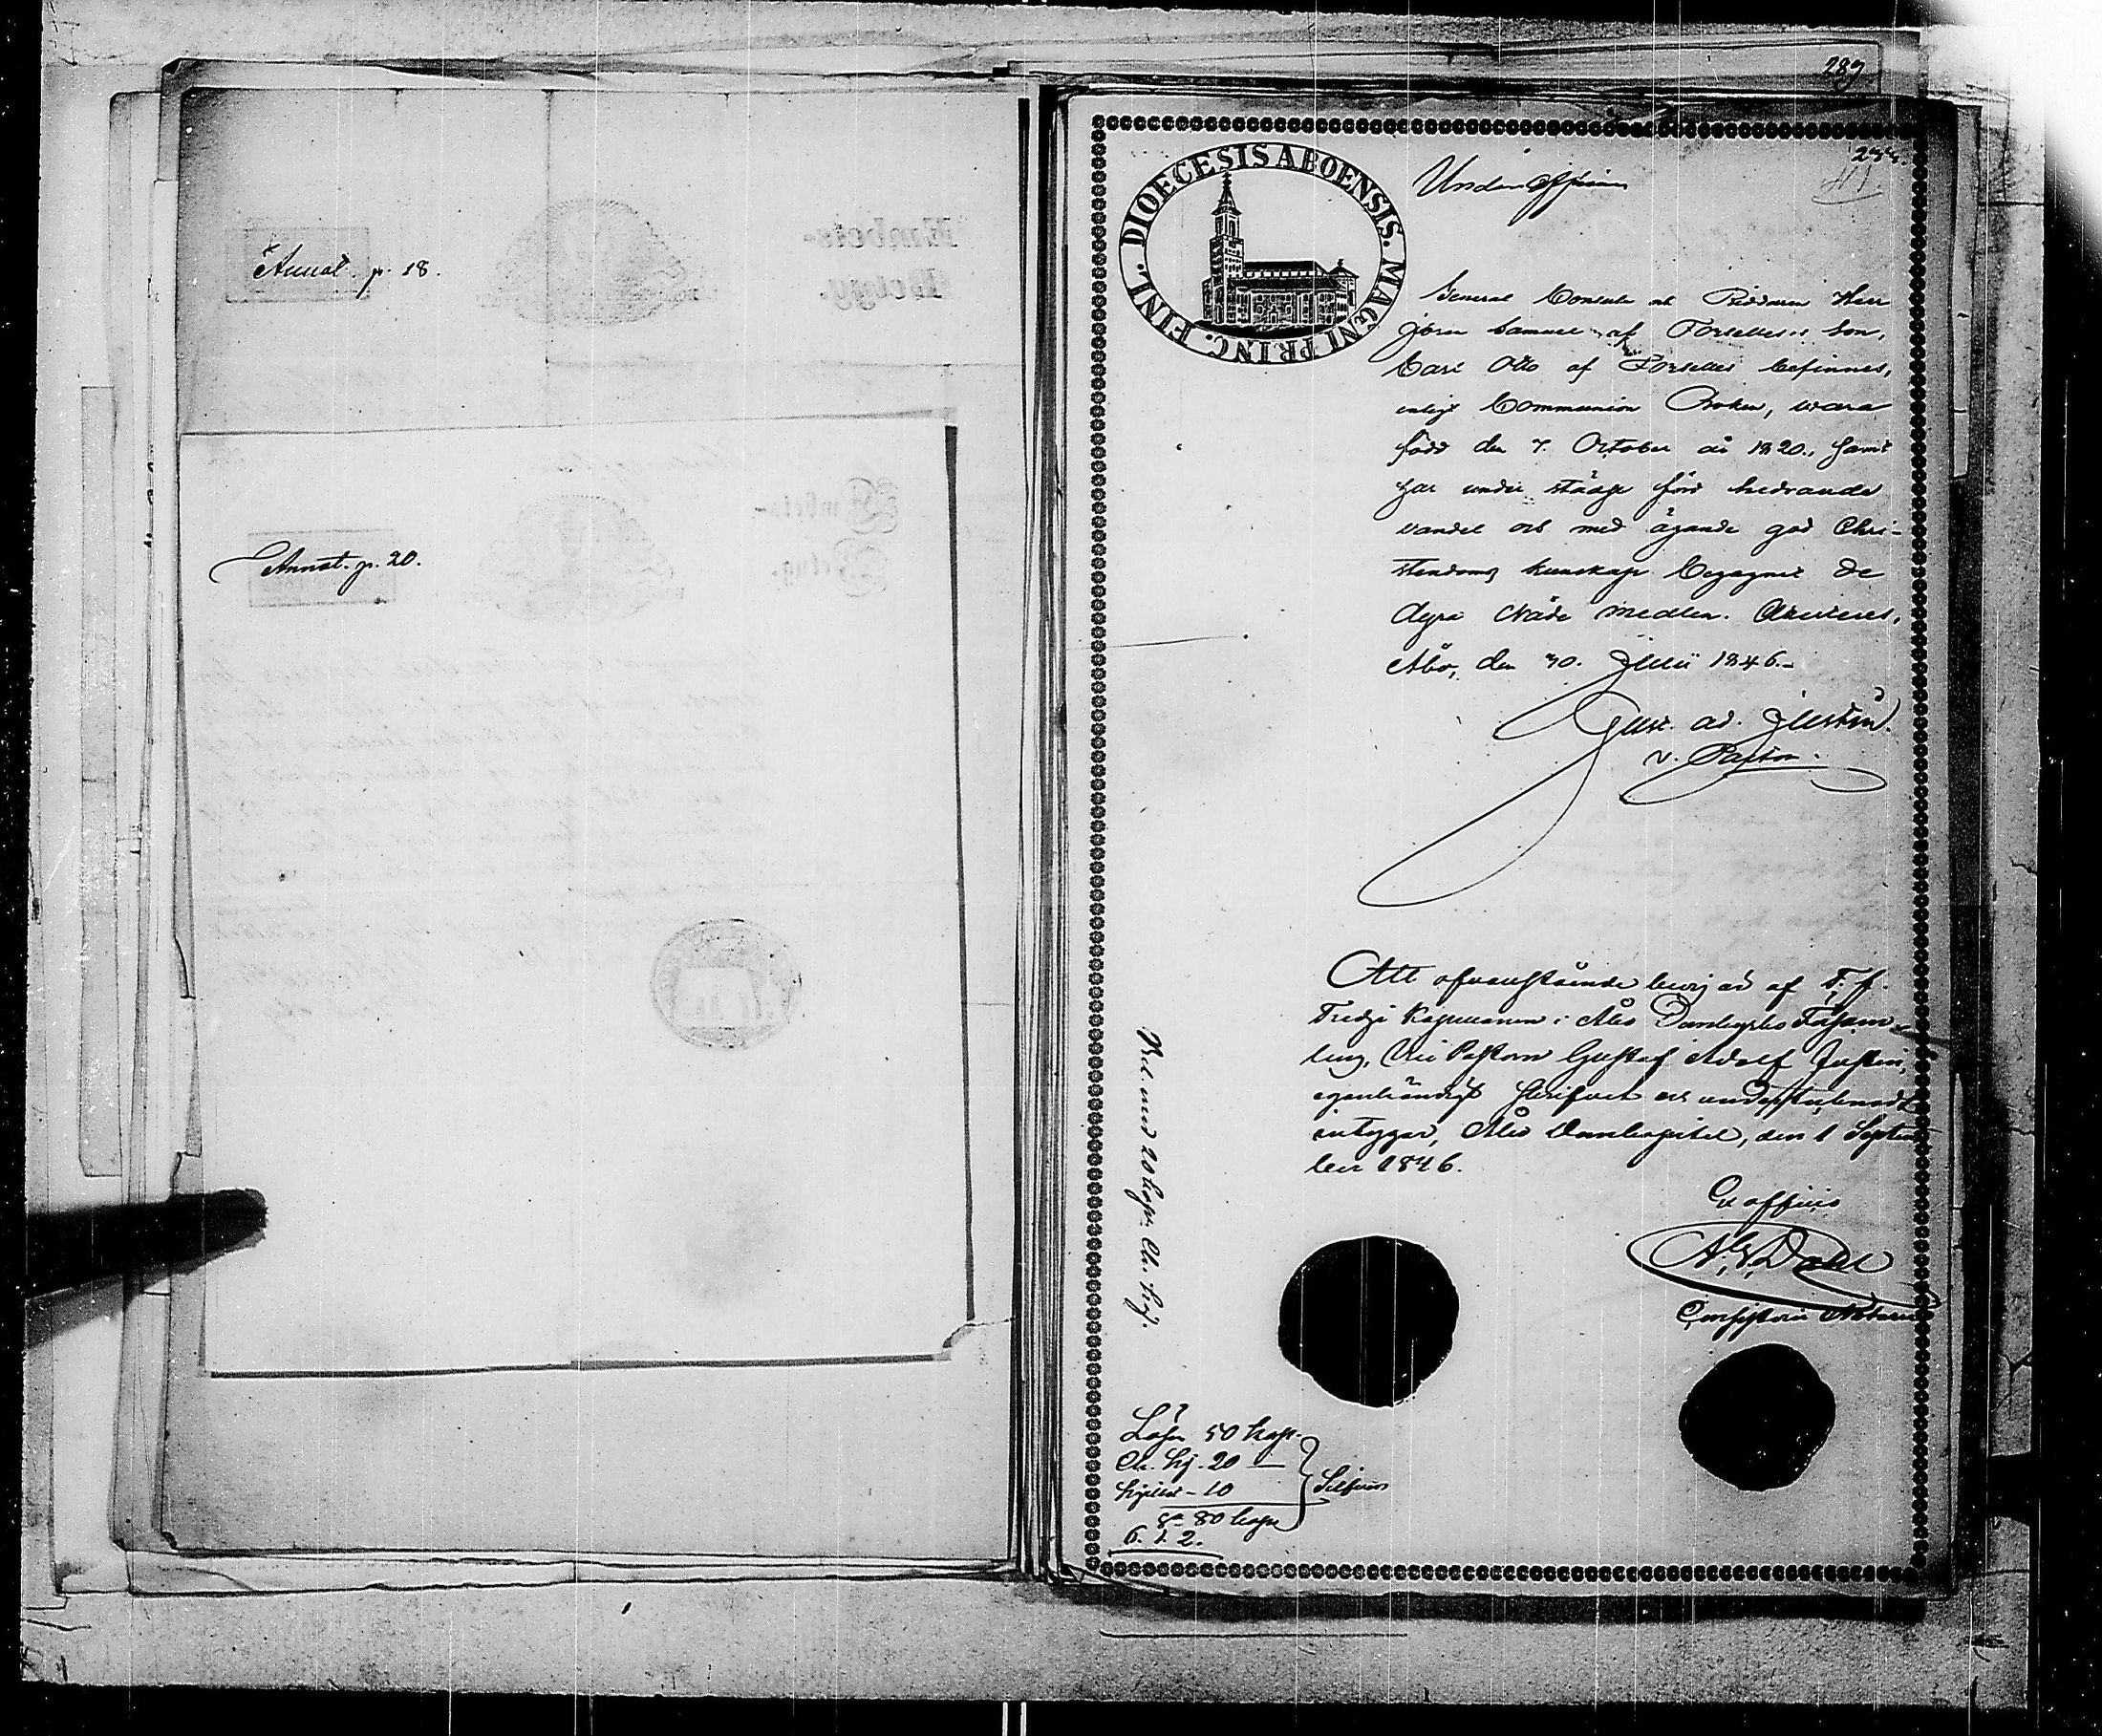 Annot. p. 18.
Annot. p. 20.
289
DIOECESIS ABOENSIS. MAGNI PRINC. FINL.
Underofficeren
General Consuln och Riddaren Herr
Jöran Samuel af Forselles's Son,
Carl Otto af Forselles befinnes,
enligt Communion Boken, wara
född den 7. October år 1820., samt
har under städse förd hedrande
vandel och med ägande god Chri-
stendoms kunskap begagnat de
dyra Nåde medlen. Attesteras,
Åbo, den 30. Junii 1846.
Gust. Ad. Justin.
v. Pastor.
Att ofvanstående bevis är af T. f.
Tredje Kapellanen i Åbo Domkyrko Försam-
ling, Vice Pastorn Gustaf Adolf Justin,
egenhändigt skrifvet och undertecknadt
intygar, Åbo Domkapitel, den 1 Septem
ber 1846.
Ex officio
Dahl
Consistorii Notarie
Bel. med 20 kop. Ch. Sig.
Lösen 50 kop.
Ch. Sig. 20 —
10
Silfver
S:a 80 kop.